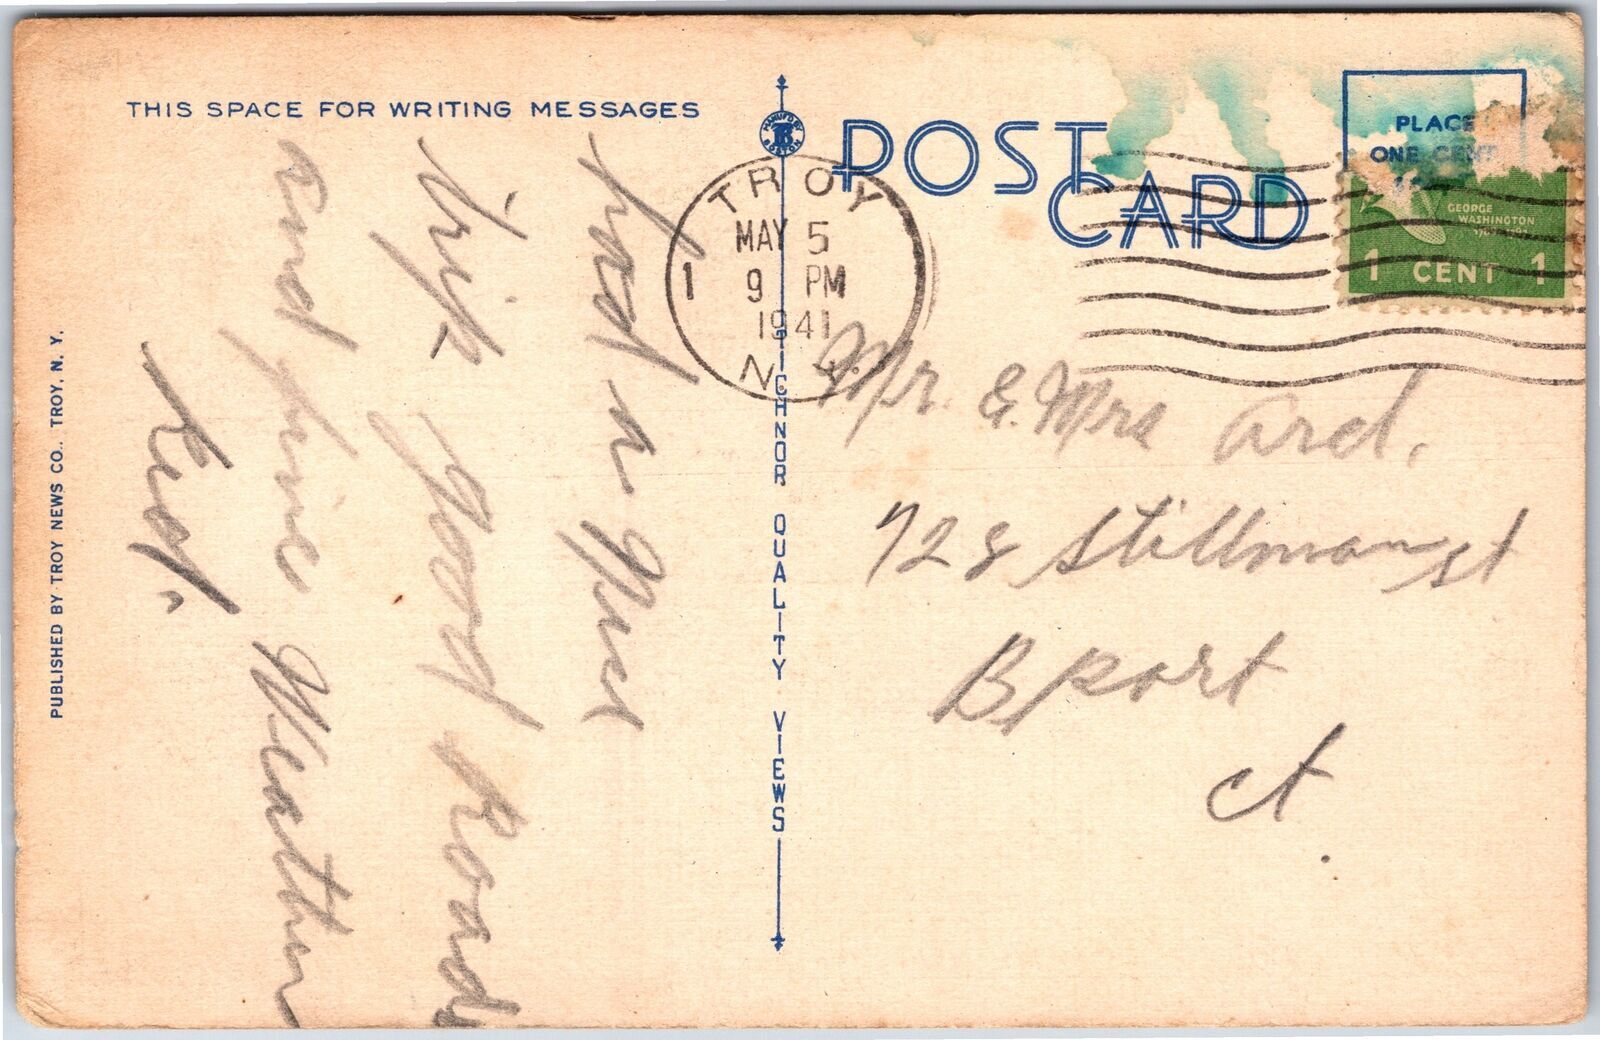 THIS SPACE FOR WRITING MESSAGES
had a Nice
trip - good Roads
and fine Weather
Red.
PUBLISHED BY TROY NEWS CO., TROY, N. Y.
MANUF'D BY
BOSTON
TICHNOR QUALITY VIEWS
POST CARD
TROY
MAY 5
1 9 PM
1941
N.Y.
PLACE
ONE CENT
GEORGE
WASHINGTON
1 CENT 1
Mr. & Mrs Ard.
728 Stillman st
Bport
ct.